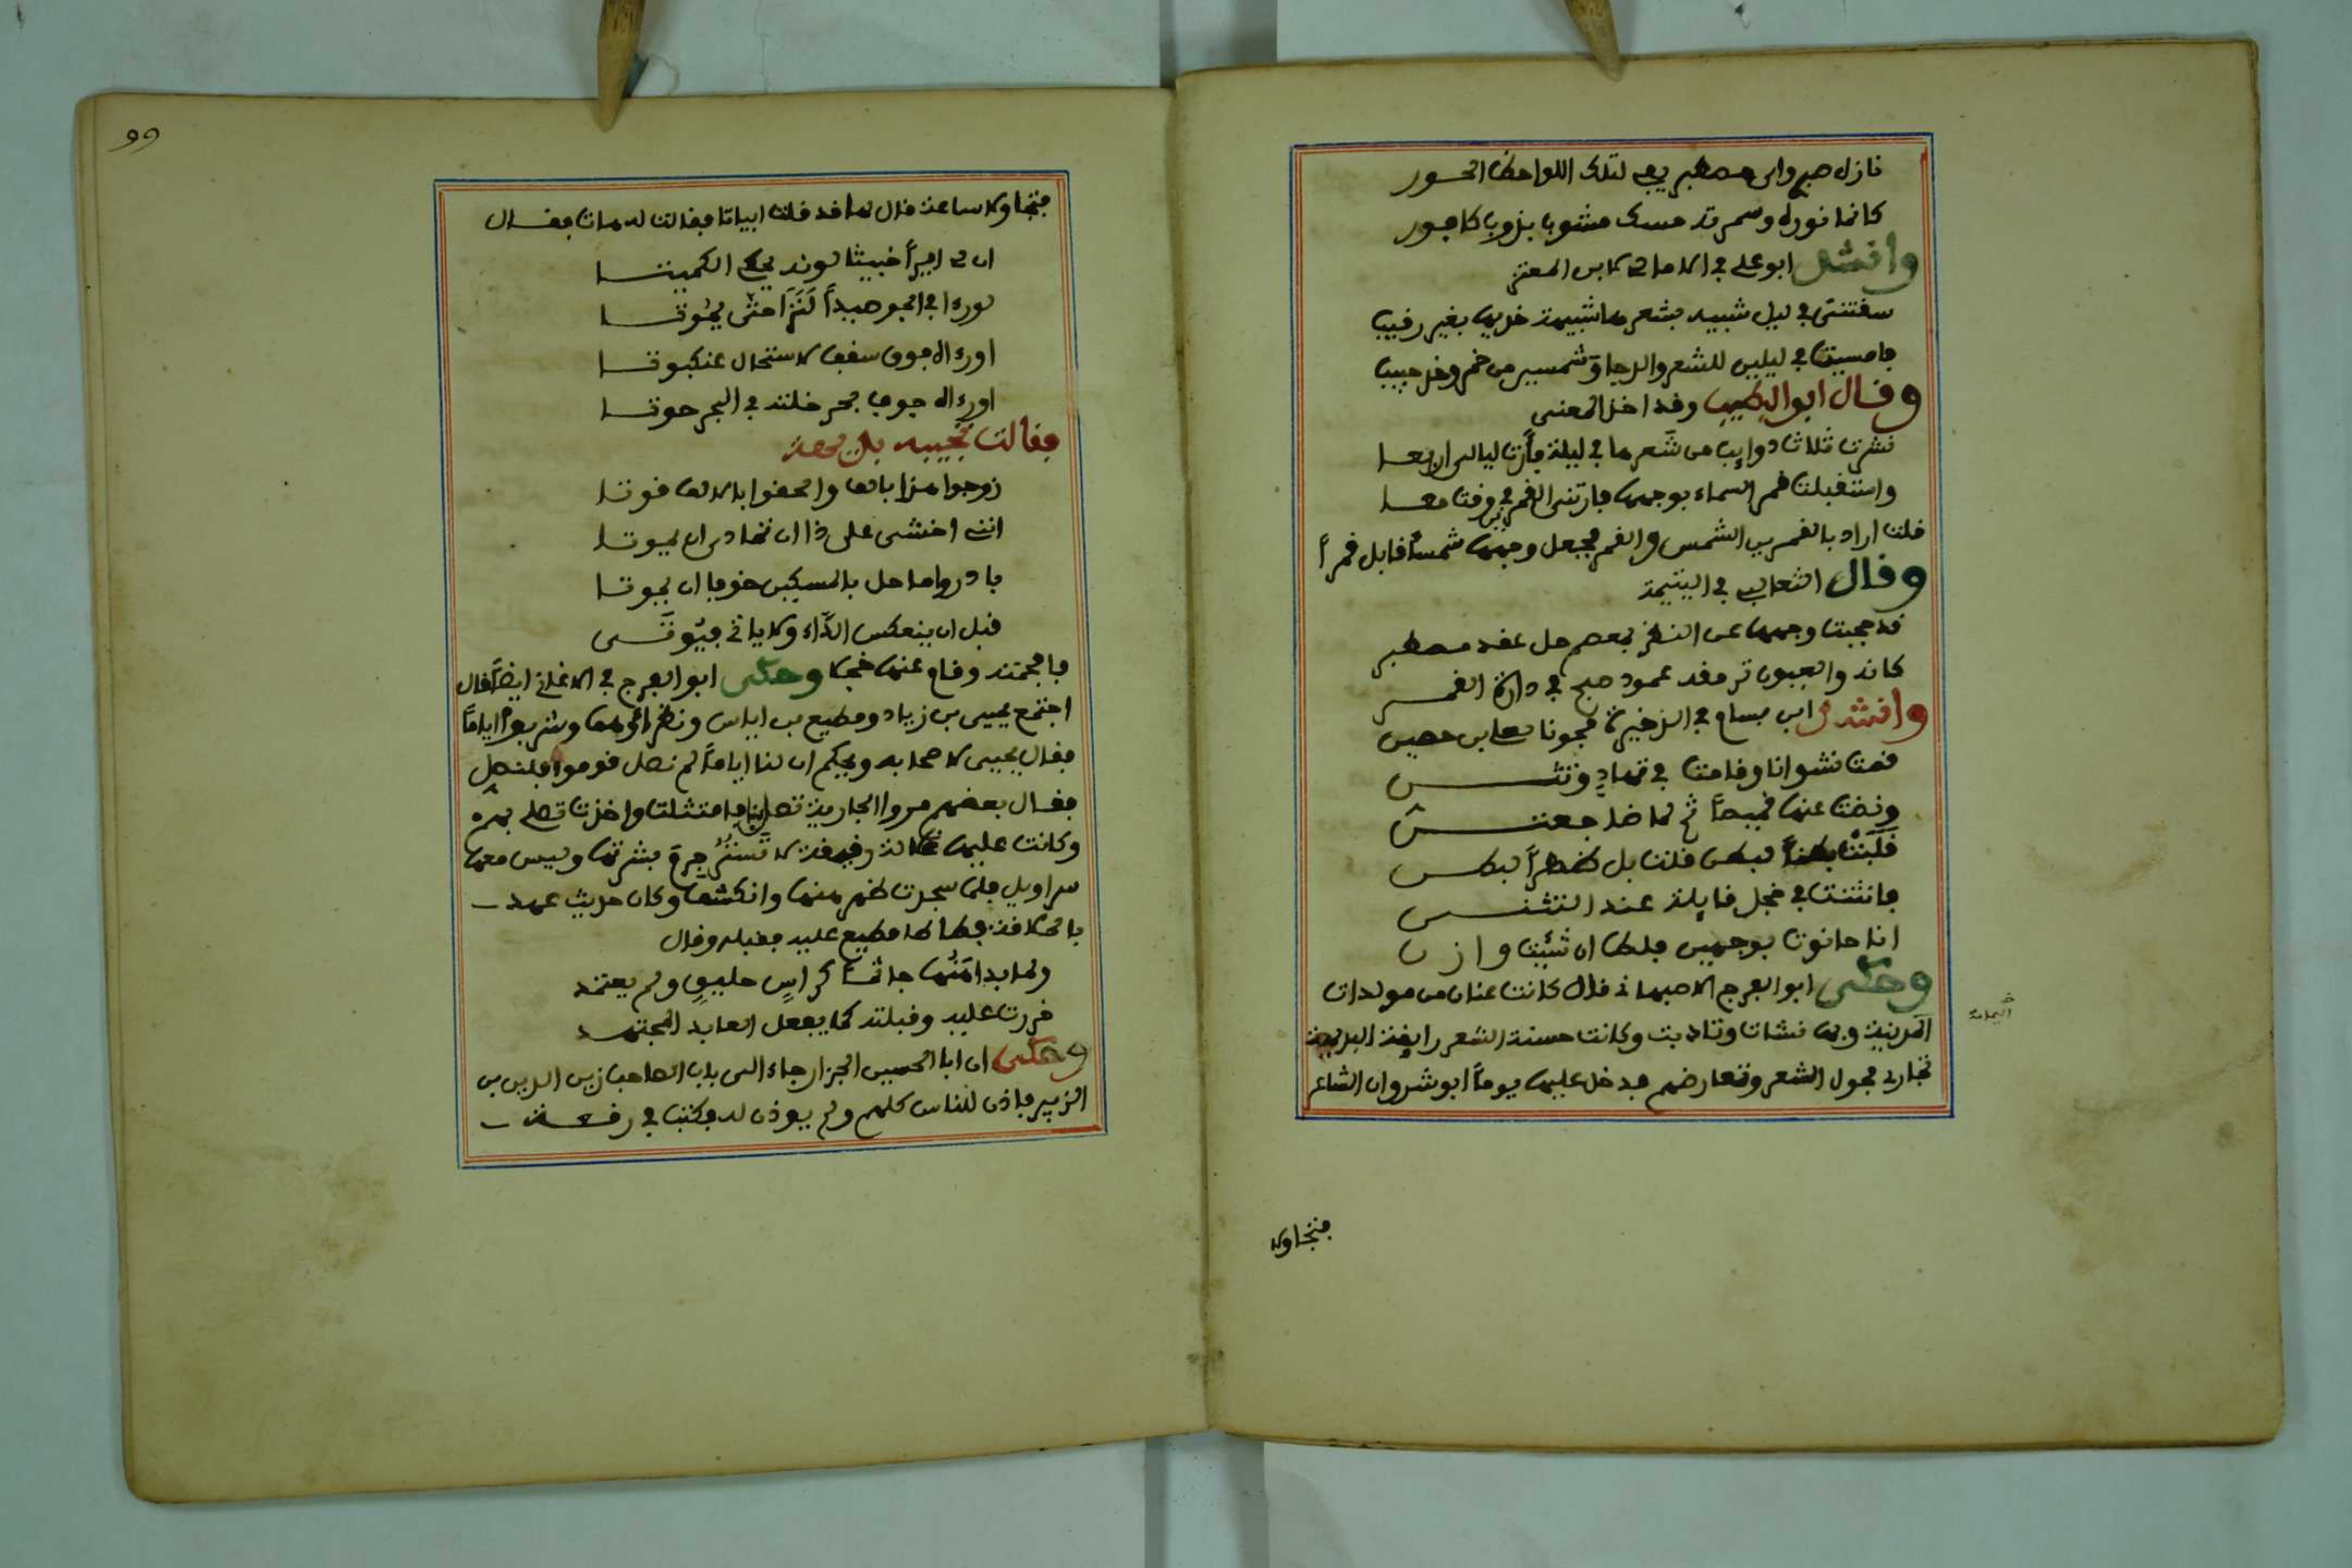 كانما نوره وسمرته مسك مشوب بذوب كافور
وانشد ابو علي في الامالي لابن المعتز
سقتني في ليل شبيه بشعرها شبيهة خديها بغير رقيب
فامسيت في ليلين للشعر والدجا وشمسين من خمر وخد حبيب
وقال ابو الطيب وقد اخذ المعنى
نشرت ثلاث ذوايب من شعرها في ليلة فأرت ليالي اربعا
واستقبلت قمر السماء بوجهها فارتني القمرين في وقت معا
قلت اراد بالقمرين الشمس والقمر فجعل وجهها شمساً قابل قمراً
وقال الثعالبي في اليتيمة
قد حجبت وجهها عن النظر بمعصم حل عقد مصطبر
كانه والعيون ترمقه عمود صبح في دارة القمر
وانشد ابن بسام في الذخيرة مجونا
قمت نشوانا وقامت في تهادٍ وتثن
ونضت عنها قميصاً ثم لما ضاجعتن
قلبت بطناً لبطن قلت بل ظهراً لبطن
فانثنت في خجل قايلة عند التثن
انا حانوت بوجهين فلط ان شئت وازن
وحكى ابو الفرج الاصبهاني قال كانت عنان من مولدات
اليمامة
المدينة وبها نشات وتادبت وكانت حسنة الشعر رايقة البديهة
تجاري فحول الشعر وتعارضهم فدخل عليها يوماً ابو شروان الشاعر
فتجاولا
99
فتجاولا ساعة قال لها قد قلت ابياتا فقالت له هات فقال
ان لي ايراً خبيثا لونه يحكي الكميتا
لو رءا في الجو صدعاً لنزا حتى يموتا
او رءاه فوق سقف لاستحال عنكبوتا
او رءاه جوف بحر خلته في البحر حوتا
فقالت تجيبه بديهة
زوجوا هذا بالف واظن الالف قوتا
انني اخشى على ذا ان تمادى ان يموتا
بادروا ما حل بالمسكين خوفا ان يفوتا
قبل ان ينعكس الدّاء ولا ياتي فيُوتَى
فافحمته وقام عنها خجلا وحكى ابو الفرج في الاغاني ايضاً قال
اجتمع يحيى بن زياد ومطيع بن اياس ونظراؤهما وشربوا اياماً
فقال يحيى لاصحابه ويحكم ان لنا اياماً لم نصل قوموا فلنصل
فقال بعضهم مروا الجارية تصلي بنا فامتثلت واخذت تصلي بهم
وكانت عليها غلالة رقيقة لا تستر بشرتها وليس معها
سراويل فلما سجدت ظهر منها وانكشف وكان حديث عهد
بالحلاقة مطيع عليه فقبله وقال
ولما بدا جاثما كراسٍ حليقٍ ولم يعتمد
خررت عليه وقبلته كما يفعل العابد المجتهد
وحكى ان ابا الحسين الجزار جاء الى باب الصاحب زين الدين بن
الزبير فاذن للناس كلهم ولم يوذن له فكتب في رقعة